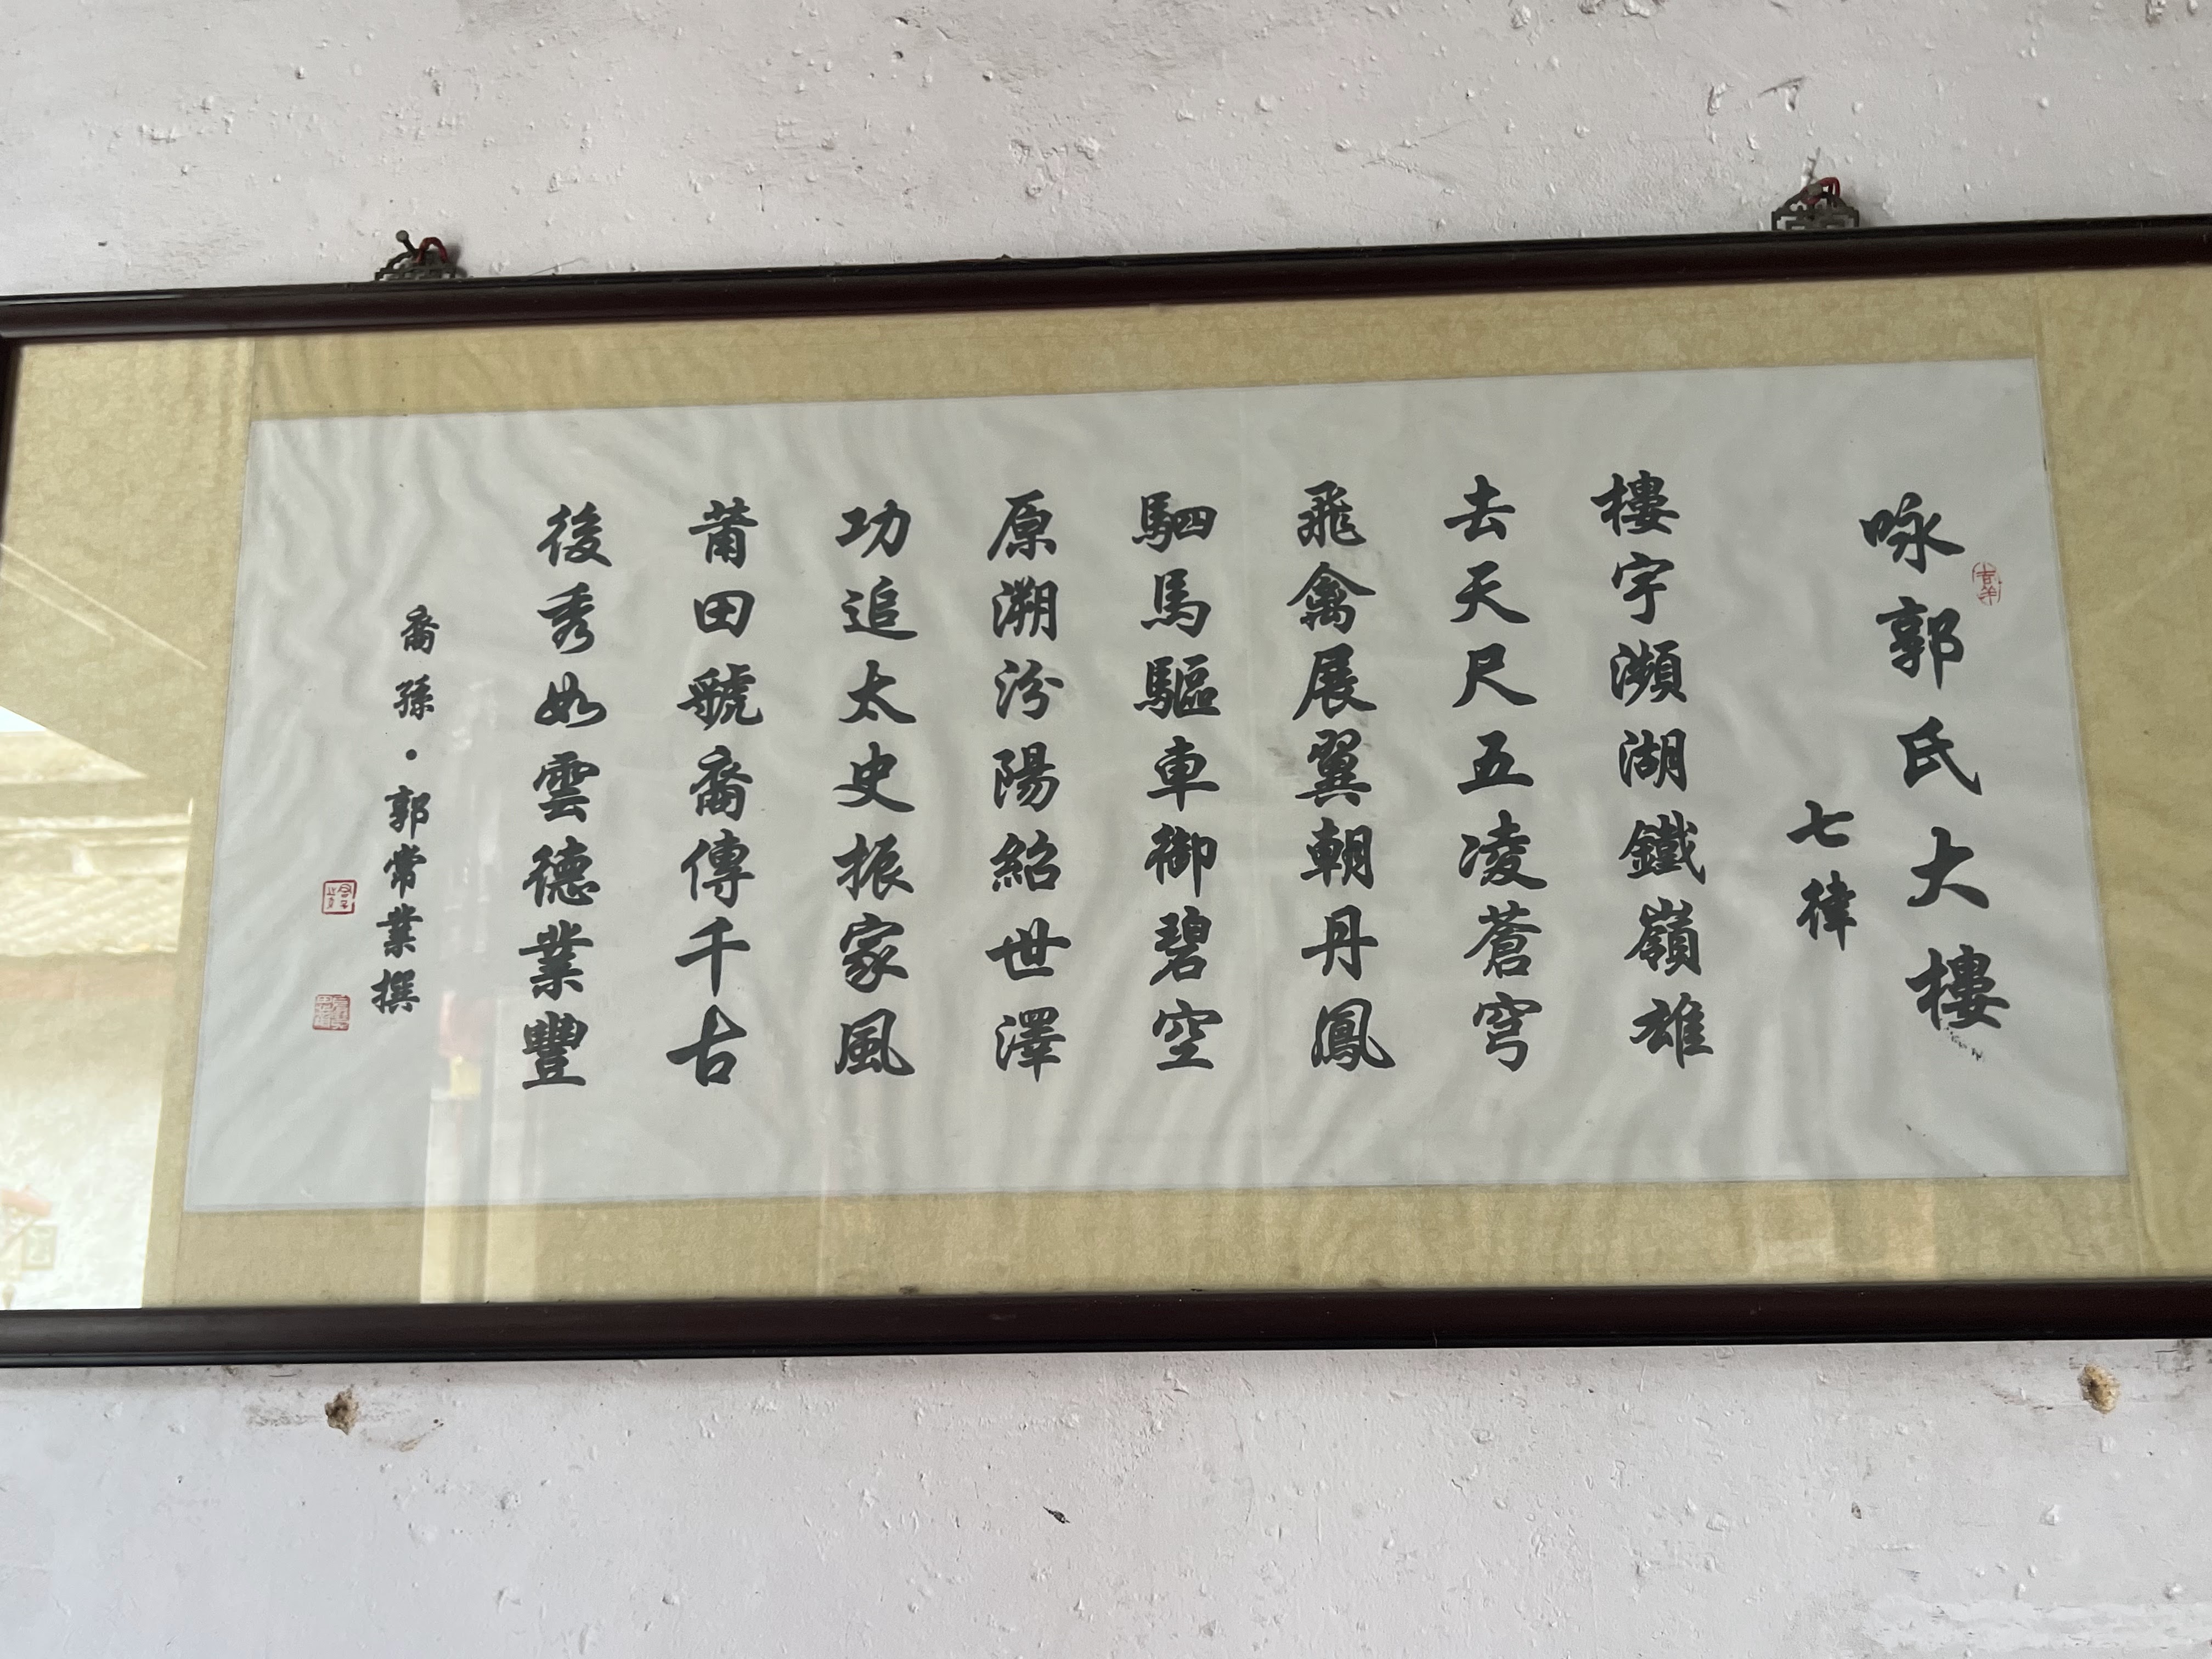 咏郭氏大樓
七律
樓宇瀕湖鐵嶺雄
去天尺五凌蒼穹
飛禽展翼朝丹鳳
駟馬驅車御碧空
原溯汾陽紹世澤
功追太史振家風
莆田號裔傳千古
後秀如雲德業豐
裔孫·郭常業撰